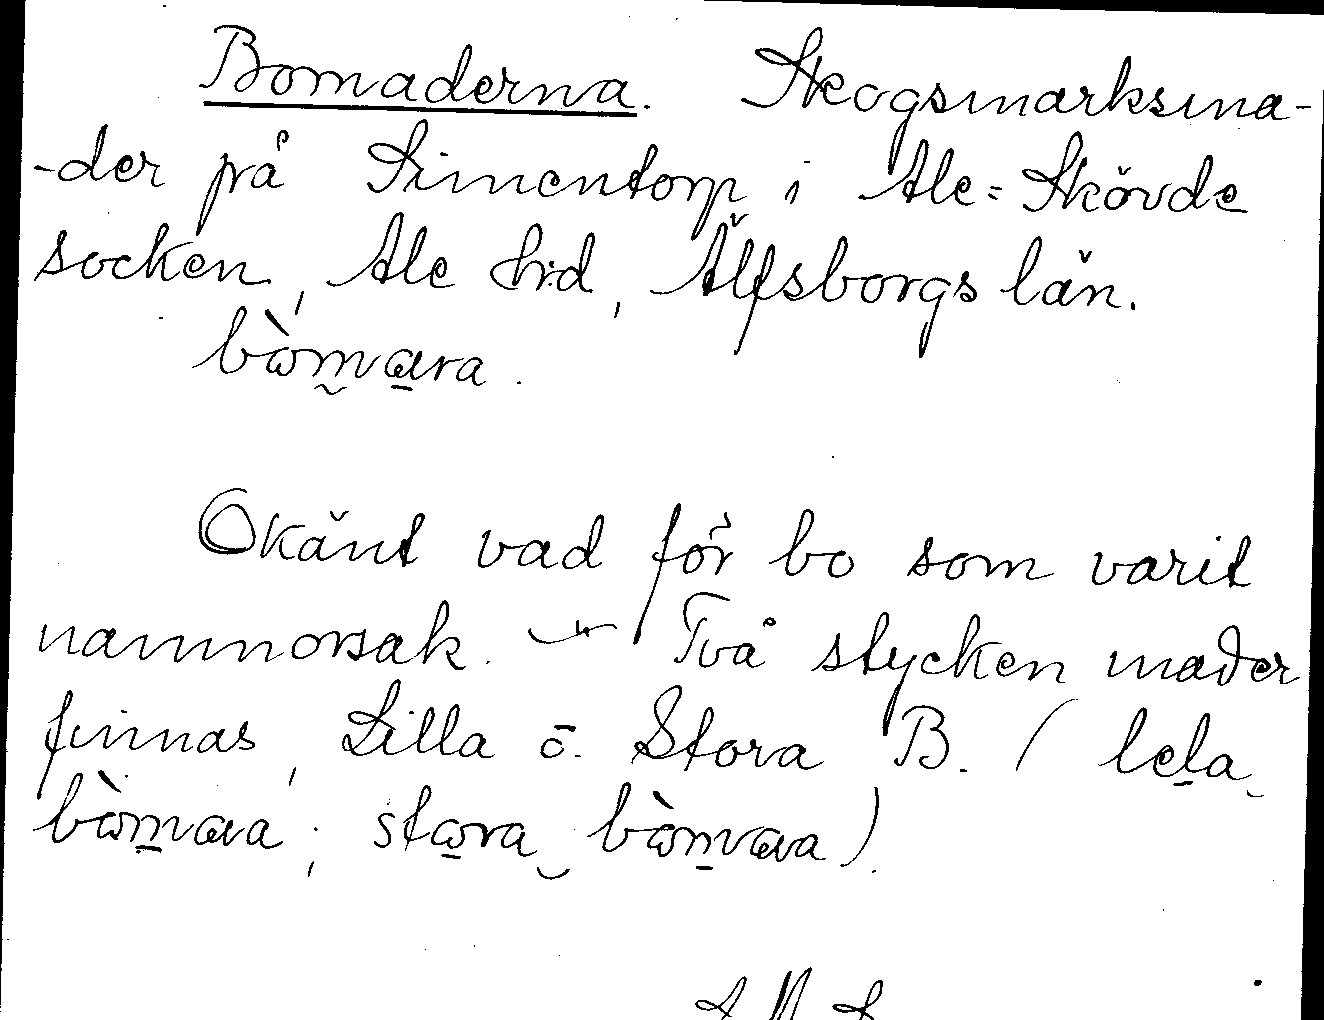 Bomaderna. Skogsmarksma-
-der på Simentorp i Ale=Skövde
socken, Ale hrd, Älfsborgs län.
bòmara.
Okänt vad för bo som varit
namnorsak. — Två stycken mader
finnas, Lilla o. Stora B. (lela
bòmara; stora bòmara).